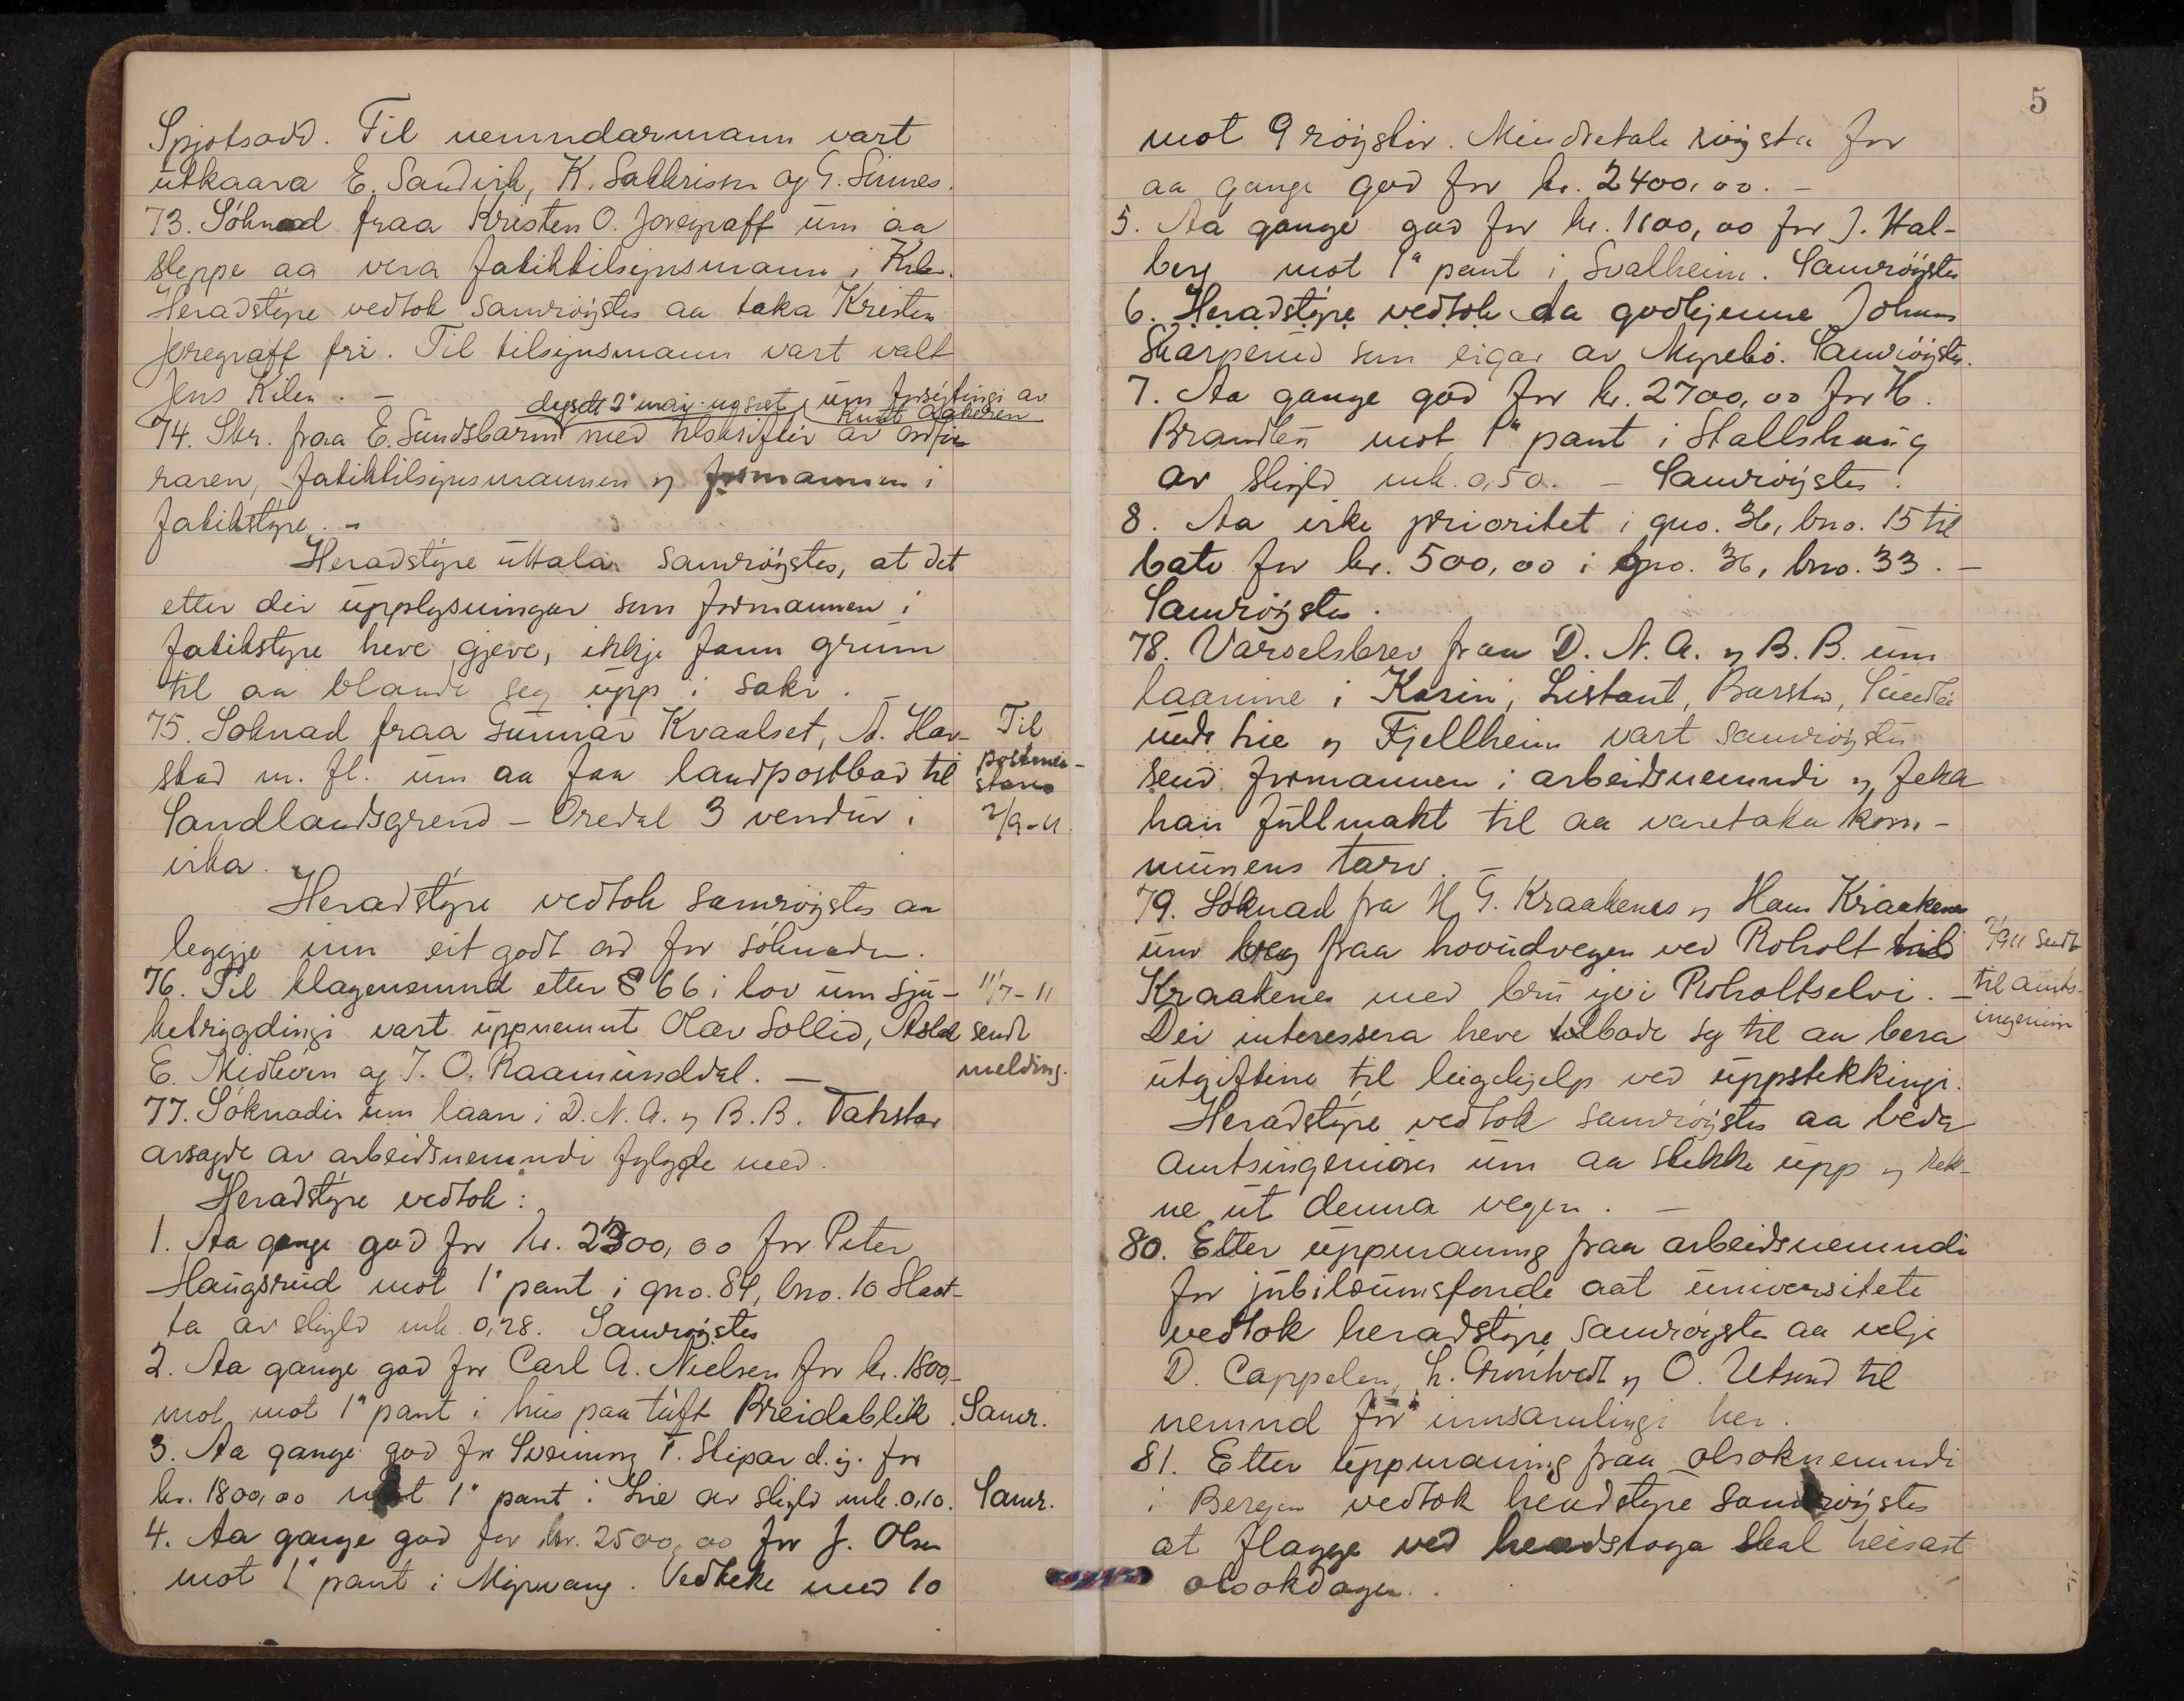 Spjotsodd. Til nemndarmann vart
utkaara E. Sandvik, K. Salkrissen og G. Sinnes.
73. Söknad fraa Kristen O. Joregraff um aa
sleppe aa vera fatiktilsynsmann i Kilen.
Heradstyre vedtok samröystes aa taka Kristen
Joregraff fri. Til tilsynsmann vart valt
Jens Kilen. -
dagsett 2' mai ugset, um forsytingi av
Knut Aakeren
74. Skr. fraa E. Sundsbarm med tilskrifter av ordfö-
raren, fatiktilsynsmannen og formannen i
fatikstyre. -
Heradstyre uttalar samröystes, at det
etter dei upplysningar som formannen i
fatikstyre heve gjeve, ikkje fann grunn
til aa blande seg upp i saki. -
75. Soknad fraa Gunnar Kvaalset, A. Hav-
stad m. fl. um aa faa landpostbod til
Sandlandsgrend - Oredal 3 vendur i
vika.
Til
postmei-
staren
2/9-11.
Heradstyre vedtok samröystes aa
leggje inn eit godt ord for söknaden.
76. Til klagenemnd etter § 66 i lov um sju-
ketrygdingi vart uppnemnt Olav Sollid, Aslak
E. Midtvein og T. O. Raamunddal. -
11/7-11
sendt
melding.
77. Söknader um laan i D. N. A. og B. B. Takstar
avsagde av arbeidsnemndi fylgde med.
Heradstyre vedtok:
1. Aa gange god for kr. 2300,00 for Peter
Haugsrud mot 1' pant i gno. 84, bno. 10 Slaat-
ta av skyld mk. 0,28. Samröystes
2. Aa gange god for Carl A. Nielsen for kr. 1800,-
mot mot 1" pant i hus paa tuft Breidablik. Samr.
3. Aa gange god for Sveinung T. Stipar d. y. for
kr. 1800,00 mot 1" pant i Lie av skyld mk. 0,10. Samr.
4. Aa gange god for kr. 2500,00 for J. Olsen
mot 1" pant i Myrvang. Vedteke med 10
5
mot 9 röyster. Mindretale röysta for
aa gange god for kr. 2400,00. -
5. Aa gange god for kr. 1800,00 for J. Hal-
berg mot 1" pant i Svalheim. Samröystes
6. Heradstyre vedtok da godkjenne Johann
Skarperud som eigar av Myrebö. Samröystes.
7. Aa gange god for kr. 2700,00 for H.
Brandten mot 1" pant i Stallshaug
av skyld mk. 0,50. - Samröystes.
8. Aa vike prioritet i gno. 36, bno. 15 til
bate for kr. 500,00 i gno. 36, bno. 33. -
Samröystes.
78. Varselsbrev fraa D. N. A. og B. B. um
laanine i Karin, Listaut, Barstad, Sundbö
undr. Lie og Fjellheim vart samröystes
send formannen i arbeidsnemndi og feka
han fullmakt til aa varetaka kom-
munens tarv. -
79. Söknad fra H. G. Kraakenes og Hans Kraakenes
um veg fraa hovudvegen ved Roholt til
Kraakenes med bru yvi Roholtselvi. -
Dei interessera heve tilbode seg til aa bera
utgiftine til leigehjelp ved uppstekkingi.
2/9 11 sendt
til amts-
ingeniör
Heradstyre vedtok samröystes aa beda
amtsingeniören um aa stikke upp og rek-
ne ut denna vegen. -
80. Etter uppmaning fraa arbeidsnemndi
for jubilæumsfonde aat universitete
vedtok heradstyre samröystes aa velje
D. Cappelen, H. Gronhvedt og O. Utsond til
nemnd for innsamlingi her.
81. Etter uppmaning fraa olsoknemndi
i Bergen vedtok heradstyre samröystes
at flagge ved heradstoga skal heisast
olsokdagen.